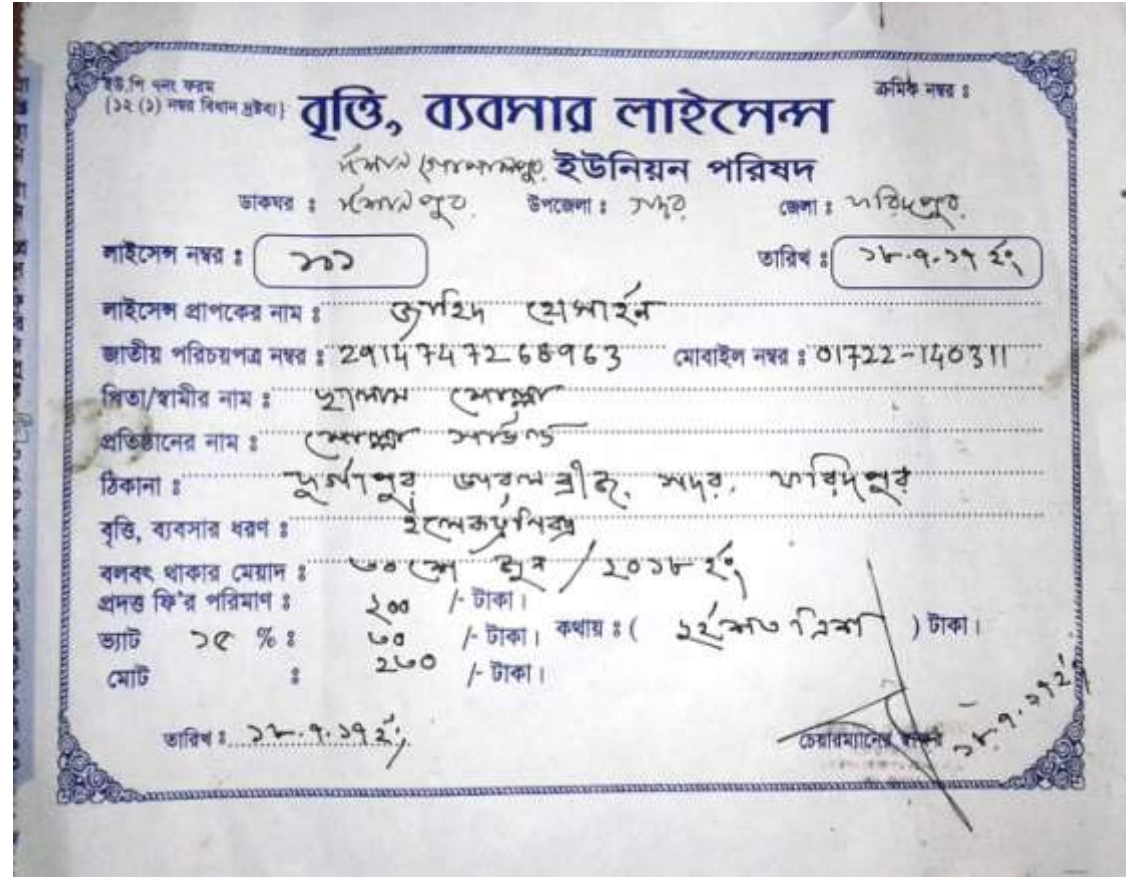 ইউ.পি ৭নং ফরম
ক্রমিক নম্বর ঃ
{১২ (১) নম্বর বিধান দ্রষ্টব্য}
বৃত্তি, ব্যবসার লাইসেন্স
ঈশান গোপালপুর ইউনিয়ন পরিষদ
ডাকঘর ঃ ঈশানপুর উপজেলা ঃ সদর জেলা ঃ ফরিদপুর
লাইসেন্স নম্বর ঃ ১০১ তারিখ ঃ ১৮.৭.১৭ ইং
লাইসেন্স প্রাপকের নাম ঃ জাহিদ হোসাইন
জাতীয় পরিচয়পত্র নম্বর ঃ 2911474726৪963 মোবাইল নম্বর ঃ 01722-140311
পিতা/স্বামীর নাম ঃ ছালাম মোল্লা
প্রতিষ্ঠানের নাম ঃ মোল্লা সার্ভিস
ঠিকানা ঃ দুর্গাপুর ব্রীজ, সদর, ফরিদপুর
বৃত্তি, ব্যবসার ধরণ ঃ ইলেকট্রনিক্স
বলবৎ থাকার মেয়াদ ঃ ৩০ শে জুন / ২০১৮ ইং
প্রদত্ত ফি'র পরিমাণ ঃ ২০০ /- টাকা।
ভ্যাট ১৫ % ঃ ৩০ /- টাকা। কথায় ঃ ( দুইশত ত্রিশ ) টাকা।
মোট ঃ ২৩০ /- টাকা।
তারিখ ঃ ১৮.৭.১৭ ইং
চেয়ারম্যানের স্বাক্ষর
১৮.৭.১৭ ইং